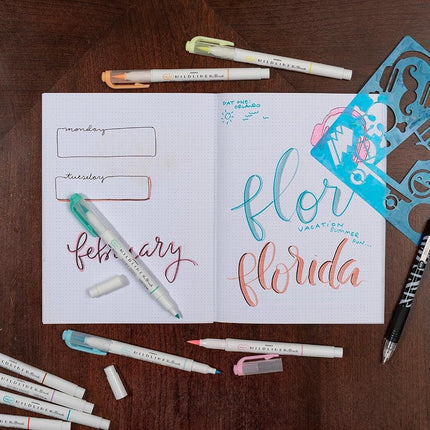 monday
tuesday
february
DAY ONE:
ORLANDO
flor
VACATION
SUMMER
FUN...
florida
MILDLINER Brush
MILDLINER Brush
MILDLINER Brush
MILDLINER Brush